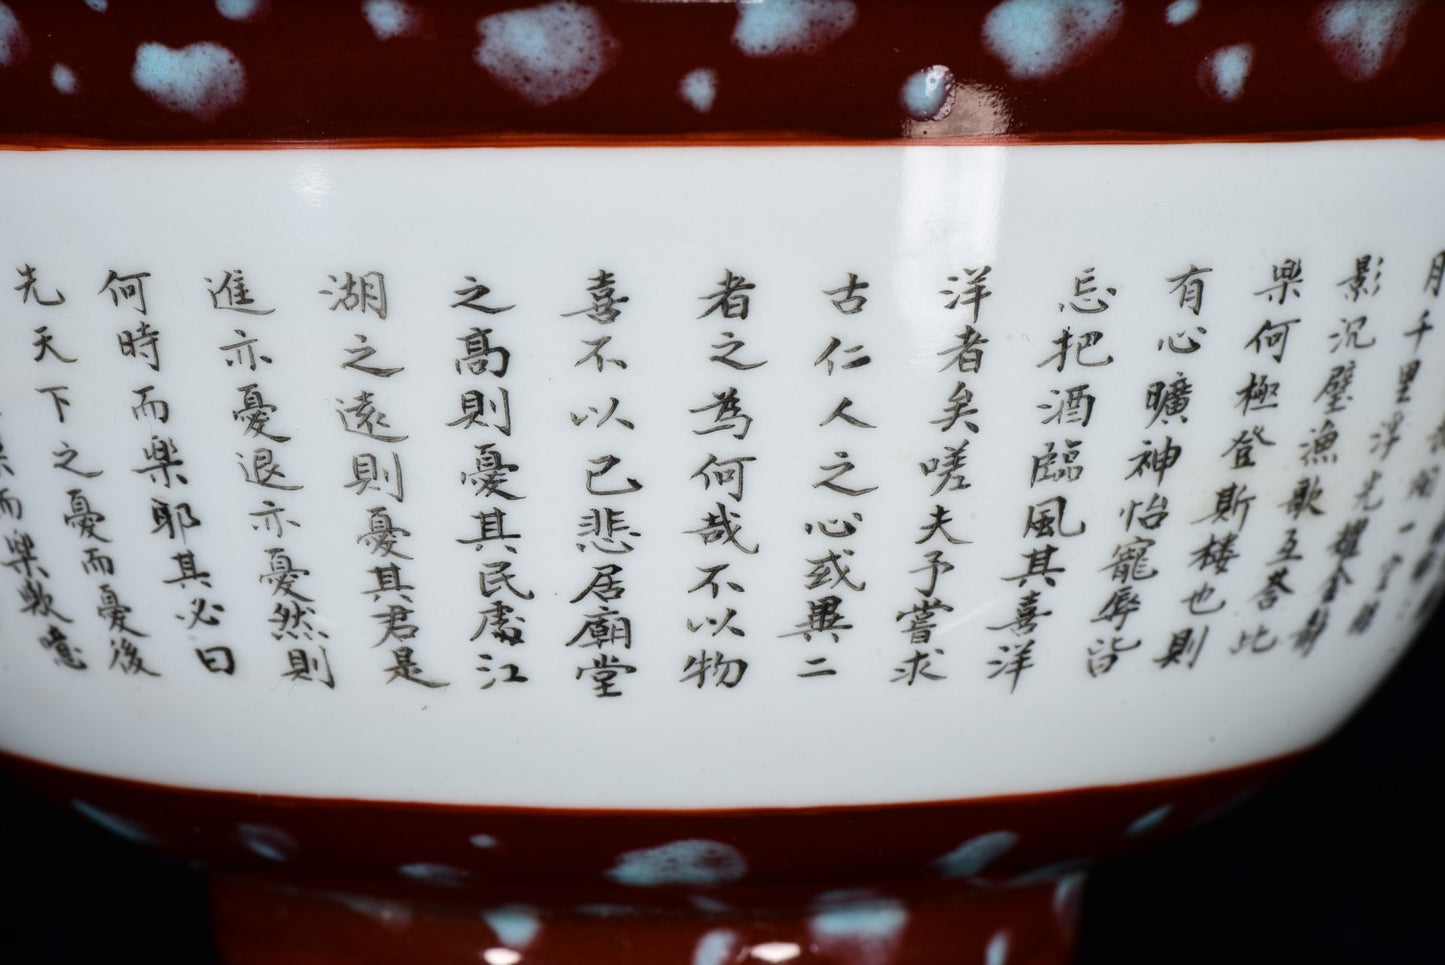 一空皓
月千里浮光耀金靜
影沉璧漁歌互荅此
樂何極登斯楼也則
有心曠神怡寵辱皆
忘把酒臨風其喜洋
洋者矣嗟夫予嘗求
古仁人之心或異二
者之為何哉不以物
喜不以己悲居廟堂
之高則憂其民處江
湖之遠則憂其君是
進亦憂退亦憂然則
何時而樂耶其必曰
先天下之憂而憂後
樂而樂歟噫